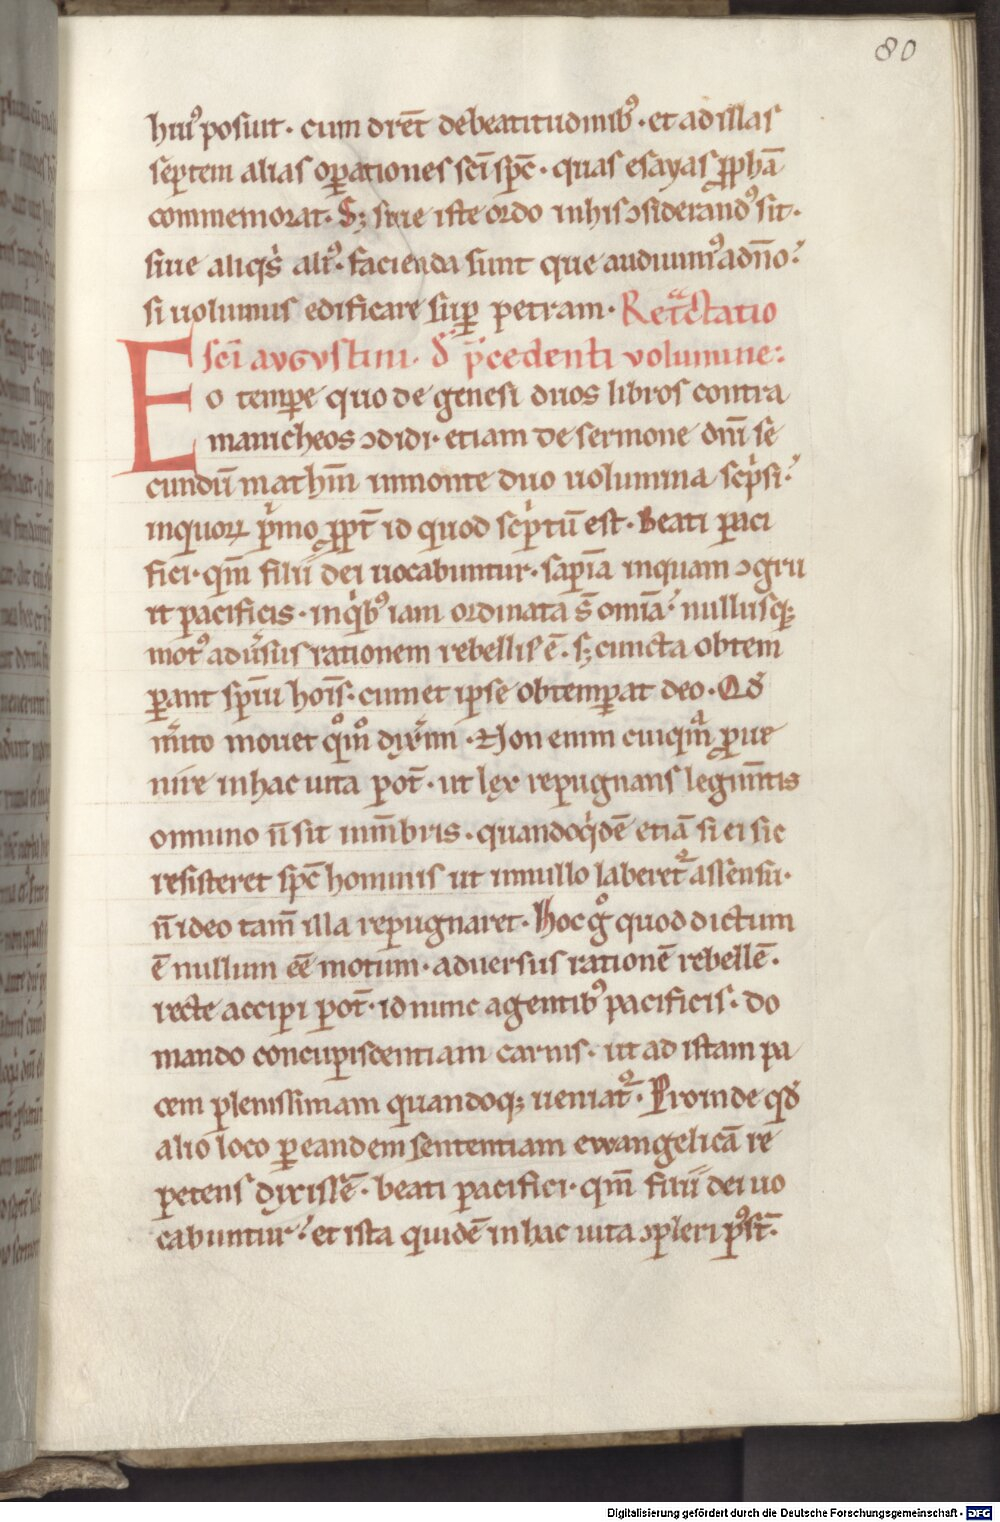 80
huiꝰ posuit · cum dic̄et de beatitudinibꝰ · et ad illas
septem alias oꝑationes sc̄i sp̄c · quas esayas ꝓph̄a
commemorat · Sꝫ siue iste ordo in his ↄsiderandꝰ sit ·
siue aliqͥs aliꝰ · facienda sunt que audiuimꝰ a dn̄o ·
si uolumus edificare suꝑ petram · Retͣctatio
sc̄i avgvstini · de p̄cedenti volumine :
Eo temꝑe quo de genesi duos libros contra
manicheos ↄdidi · etiam de sermone dn̄i se
cundū math̄m in monte duo uolumina scͥpsi ·
in quoꝝ pͥmo ꝓpt̄ id quod scͥptū est · Beati paci
fici · qm̄ filii dei uocabuntur · sapīa inquam ↄgru
it pacificis · in qͥbꝰ iam ordinata s̄ omīa · nullusqꝫ
motꝰ adu̓sus rationem rebellis ē · sꝫ cuncta obtem
ꝑant sp̄iui hoīs · cum et ipse obtemꝑat deo · Qđ
m̓ito mouet qͦmͦ dixͬim · Non enim cuiqͣm ꝓue
nire in hac uita pot̄ · ut lex repugnans legi m̄tis
omnino n̄ sit in m̄bris · quandoqͥdē etiā si ei sic
resisteret sp̄c hominis ut in nullo laberet᷑ assensu ·
n̄ ideo tam̄ illa repugnaret · Hoc gͦ quod dictum
ē nullum eē motum · aduersus rationē rebellē ·
recte accipi pot̄ · id nunc agentibꝰ pacificis · do
mando concupiscentiam carnis · ut ad istam pa
cem plenissimam quandoqꝫ ueniat᷑ · Proinde qđ
alio loco ꝑ eandem sententiam ewangelicā re
petens dixissē · beati pacifici · qm̄ filii dei uo
cabuntur · et ista quidē in hac uita ↄpleri pꝰs̄t ·
Digitalisierung gefördert durch die Deutsche Forschungsgemeinschaft - DFG